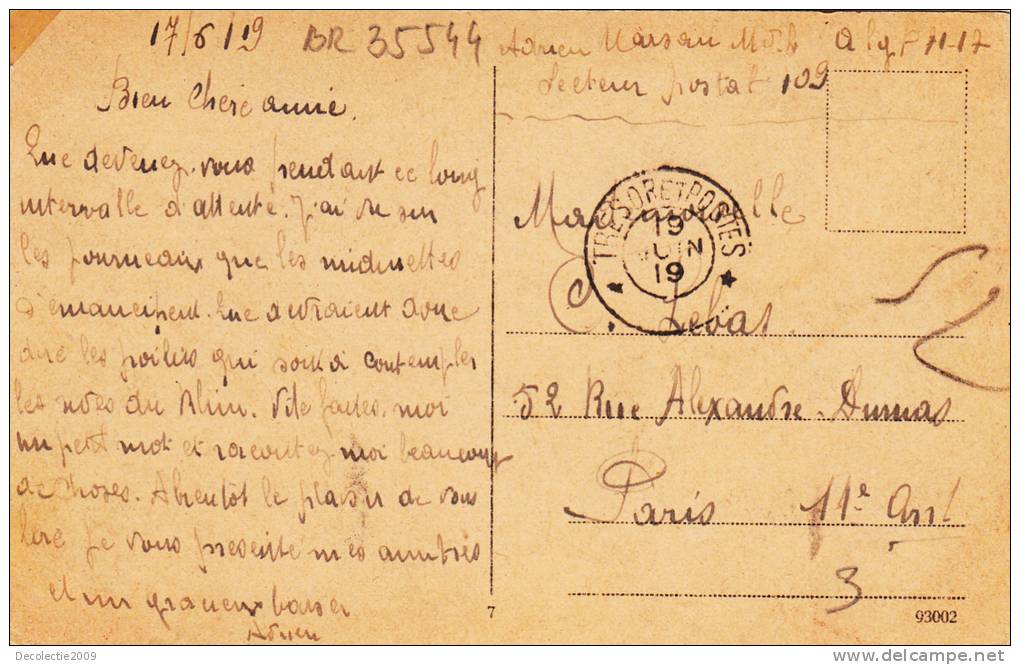 17/6/19 BR 35544
Bien chère amie.
Que devenez-vous pendant ce long
intervalle d'attente. J'ai vu sur
les journeaux que les midinettes
s'emancipent. Que devraient donc
dire les poilus qui sont à contempler
les rives du Rhin. Vite faites-moi
un petit mot et racontez-moi beaucoup
de choses. A bientôt le plaisir de vous
lire je vous presente mes amitiés
et un gracieux baiser
Adrien
Adrien Marsan
Secteur postal 109
Mademoiselle
C. Lebas
52 Rue Alexandre-Dumas
Paris 11e Arrt
3
TRESOR ET POSTES
19
JUIN
19
7
93002
Decolectie2009